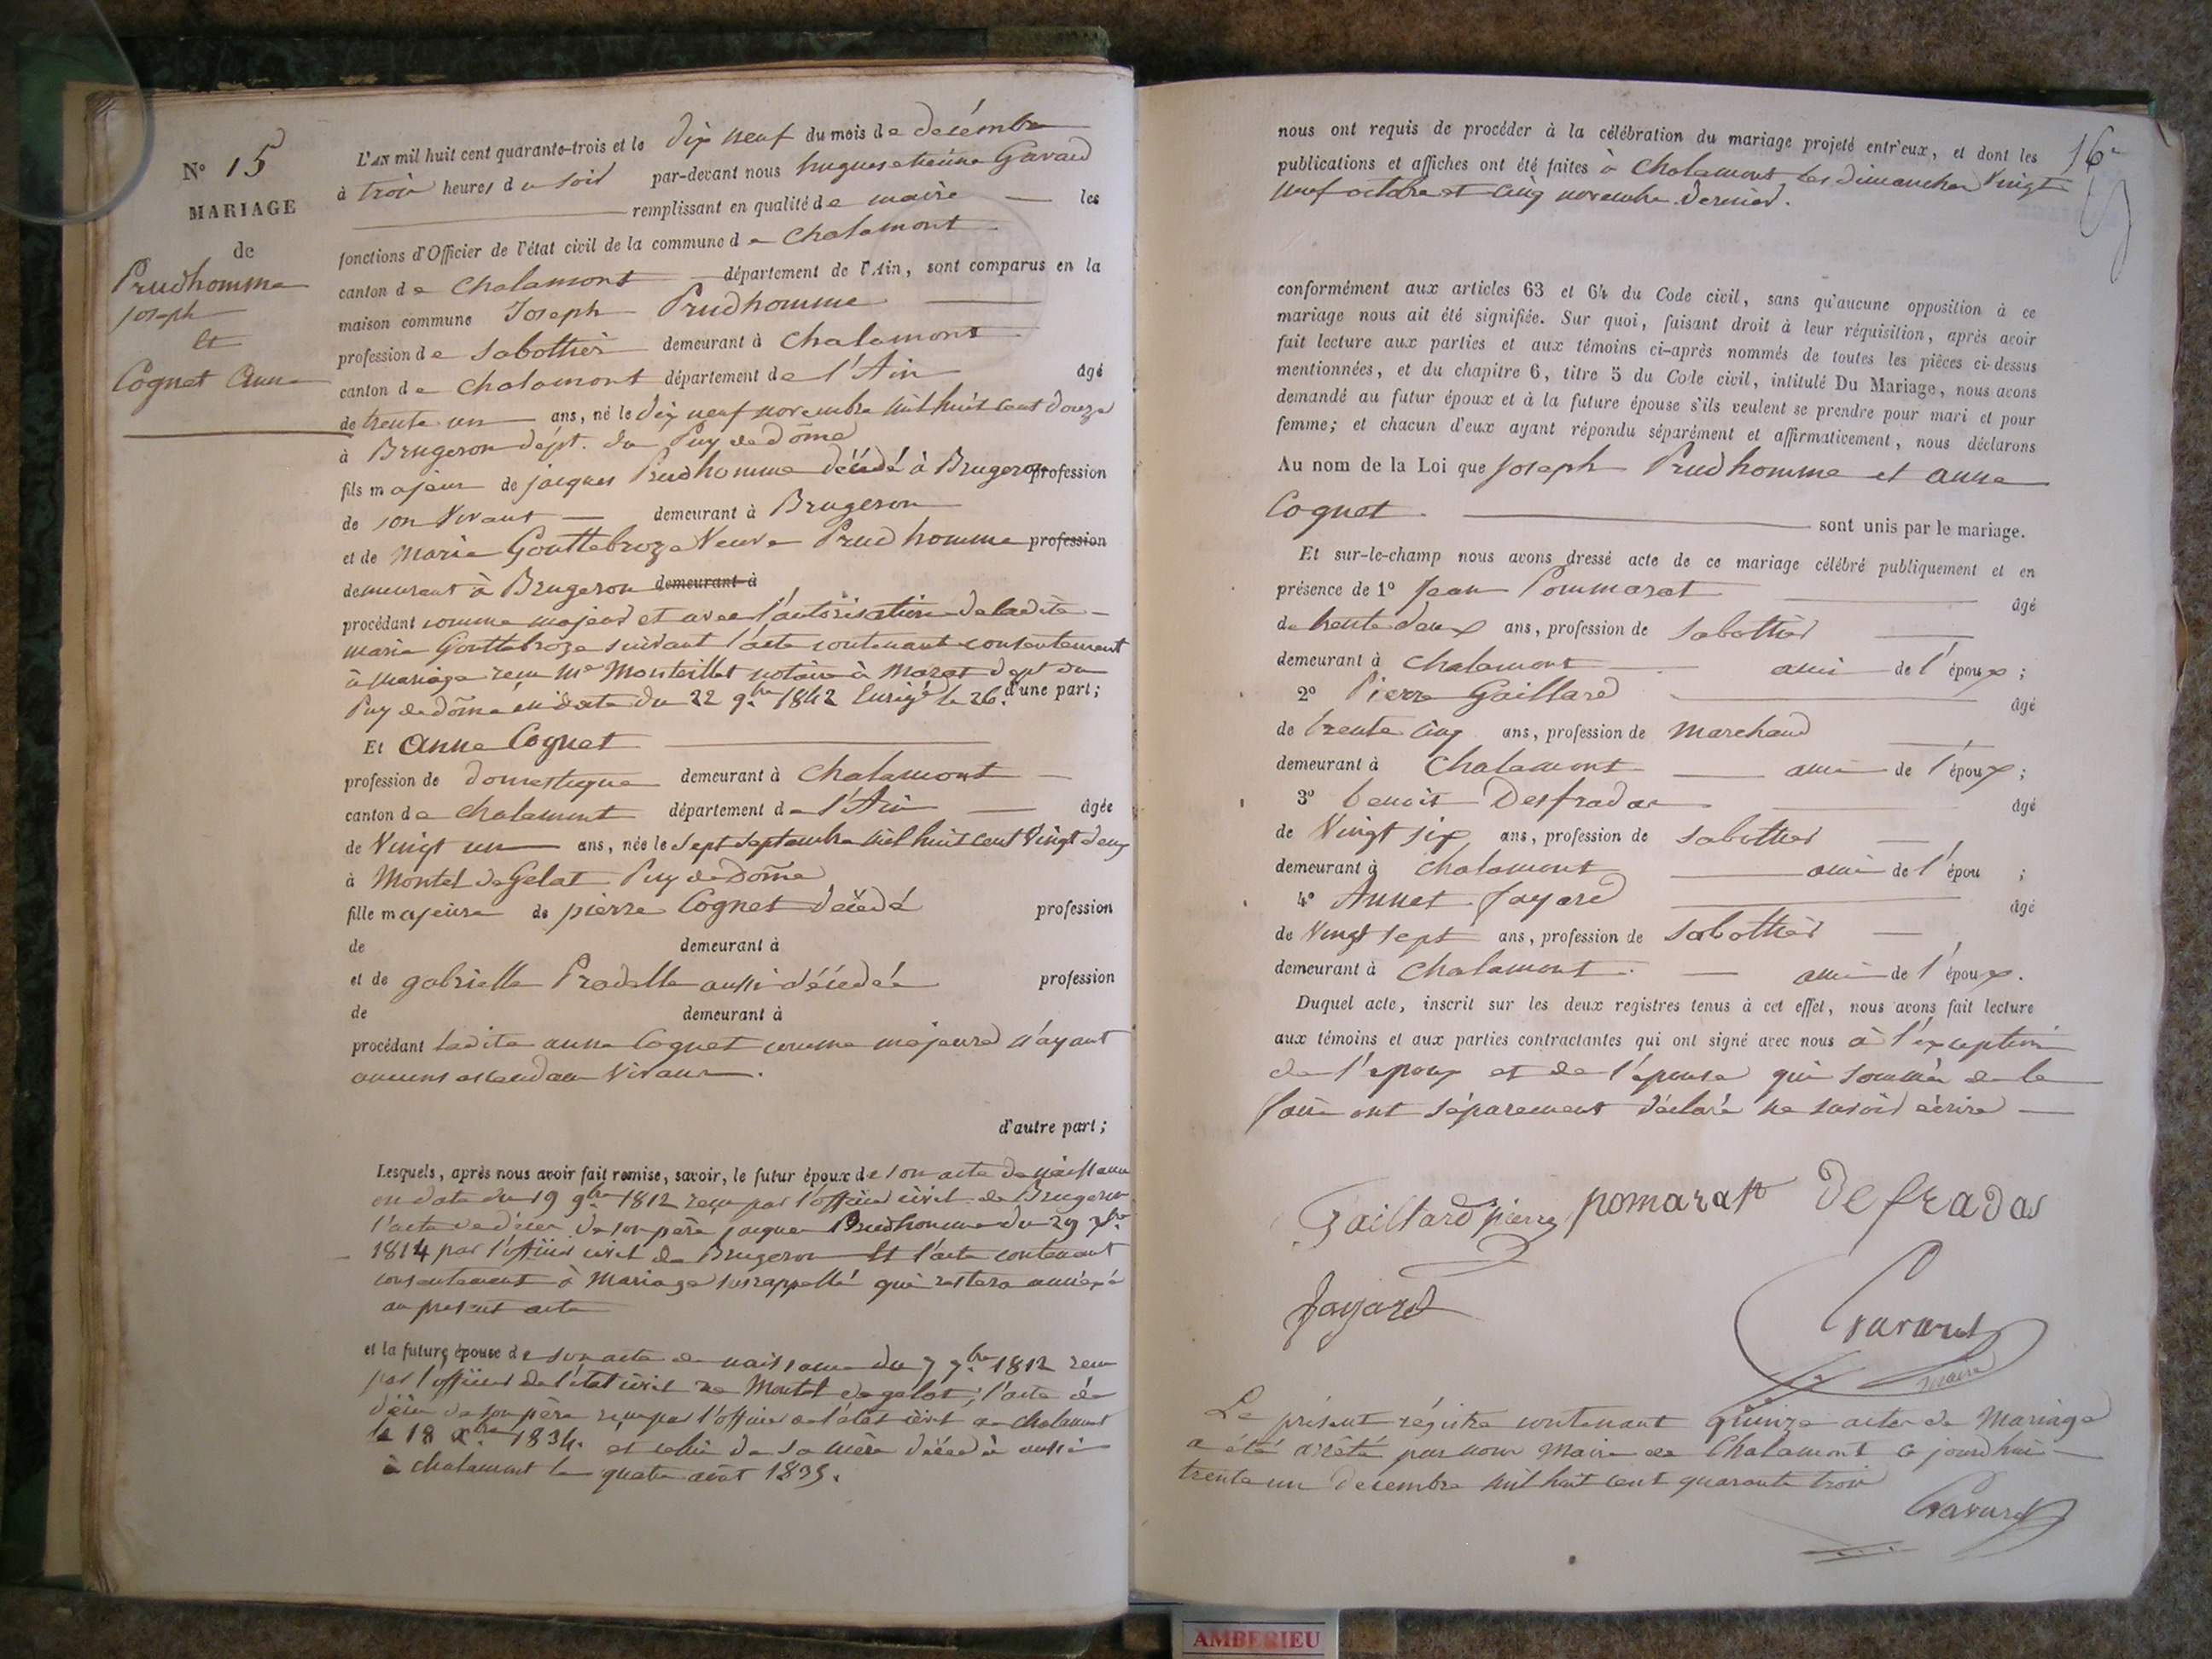 N° 15
MARIAGE
de
Prudhomme
joseph
Et
Cognet Anne
L'AN mil huit cent quarante-trois et le dix neuf du mois de décembre
à trois heures du soir par-devant nous hugues etienne Gavard
remplissant en qualité de maire les
fonctions d'Officier de l'état civil de la commune de Chalamont
canton de Chalamont département de l'Ain, sont comparus en la
maison commune Joseph Prudhomme
profession de Sabottier demeurant à Chalamont
canton de Chalamont département de l'Ain âgé
de trente un ans, né le dix neuf novembre mil huit cent douze
à Brugeron dépt. du Puy de dôme
fils majeur de jacques Prudhomme décédé à Brugeron profession
de son vivant demeurant à Brugeron
et de Marie Gouttebroze Veuve Prudhomme profession
demeurant à Brugeron demeurant à
procédant comme majeur et avec l'autorisation de ladite
marie Gouttebroze suivant l'acte contenant consentement
à mariage reçu Me Monteillet notaire à Marat dept du
Puy de dôme en date du 22 9bre 1842 Enrigé le 26. d'une part;
Et Anne Cognet
profession de domestique demeurant à Chalamont
canton de Chalamont département de l'Ain âgée
de Vingt un ans, née le sept septembre mil huit cent vingt deux
à Montel de Gelat Puy de Dôme
fille majeure de pierre Cognet décédé profession
de demeurant à
et de gabrielle Pradelle aussi décédée profession
de demeurant à
procédant ladite anne Cognet comme majeure n'ayant
aucuns ascendans vivans.
d'autre part;
Lesquels, après nous avoir fait remise, savoir, le futur époux de son acte de naissance
en date du 19 9bre 1812 reçu par l'officier civil de Brugeron
l'acte de décès de son père jacques Prudhomme du 29
1814 par l'officier civil de Brugeron Et l'acte contenant
consentement à Mariage susrappellé qui restera annéxé
au présent acte
et la future épouse de son acte de naissance du 7 7bre 1812 reçu
par l'officier de l'état civil de Montel de gelat; l'acte de
décès de son père reçu par l'officier de l'état civil de chalamont
le 18 Xbre 1834. et celui de sa mère décédée aussi
à chalamont le quatre août 1835.
16e
nous ont requis de procéder à la célébration du mariage projeté entr'eux, et dont les
publications et affiches ont été faites à Chalamont les dimanches Vingt
neuf octobre et cinq novembre dernier.
conformément aux articles 63 et 64 du Code civil, sans qu'aucune opposition à ce
mariage nous ait été signifiée. Sur quoi, faisant droit à leur réquisition, après avoir
fait lecture aux parties et aux témoins ci-après nommés de toutes les pièces ci-dessus
mentionnées, et du chapitre 6, titre 5 du Code civil, intitulé Du Mariage, nous avons
demandé au futur époux et à la future épouse s'ils veulent se prendre pour mari et pour
femme; et chacun d'eux ayant répondu séparément et affirmativement, nous déclarons
Au nom de la Loi que joseph Prudhomme et anne
Cognet sont unis par le mariage.
Et sur-le-champ nous avons dressé acte de ce mariage célébré publiquement et en
présence de 1° Jean Pommarat âgé
de trente deux ans, profession de Sabottier
demeurant à Chalamont ami de l'époux;
2° Pierre Gaillard âgé
de trente cinq ans, profession de Marchand
demeurant à Chalamont ami de l'époux;
3° benoit Desfradas âgé
de Vingt six ans, profession de sabottier
demeurant à Chalamont ami de l'épou ;
4° Annet fayard âgé
de Vingt sept ans, profession de Sabottier
demeurant à Chalamont. ami de l'époux.
Duquel acte, inscrit sur les deux registres tenus à cet effet, nous avons fait lecture
aux témoins et aux parties contractantes qui ont signé avec nous à l'exception
de l'époux et de l'épouse qui sommés de le
faire ont séparement déclaré ne savoir écrire
Gaillard pierre pomarat Defradas
fayard
Gavard
maire
Le présent régistre contenant quinze actes de Mariage
a été arrêté par nous Maire de Chalamont ce jourdhui
trente un Décembre mil huit cent quarante trois
Gavard
AMBERIEU